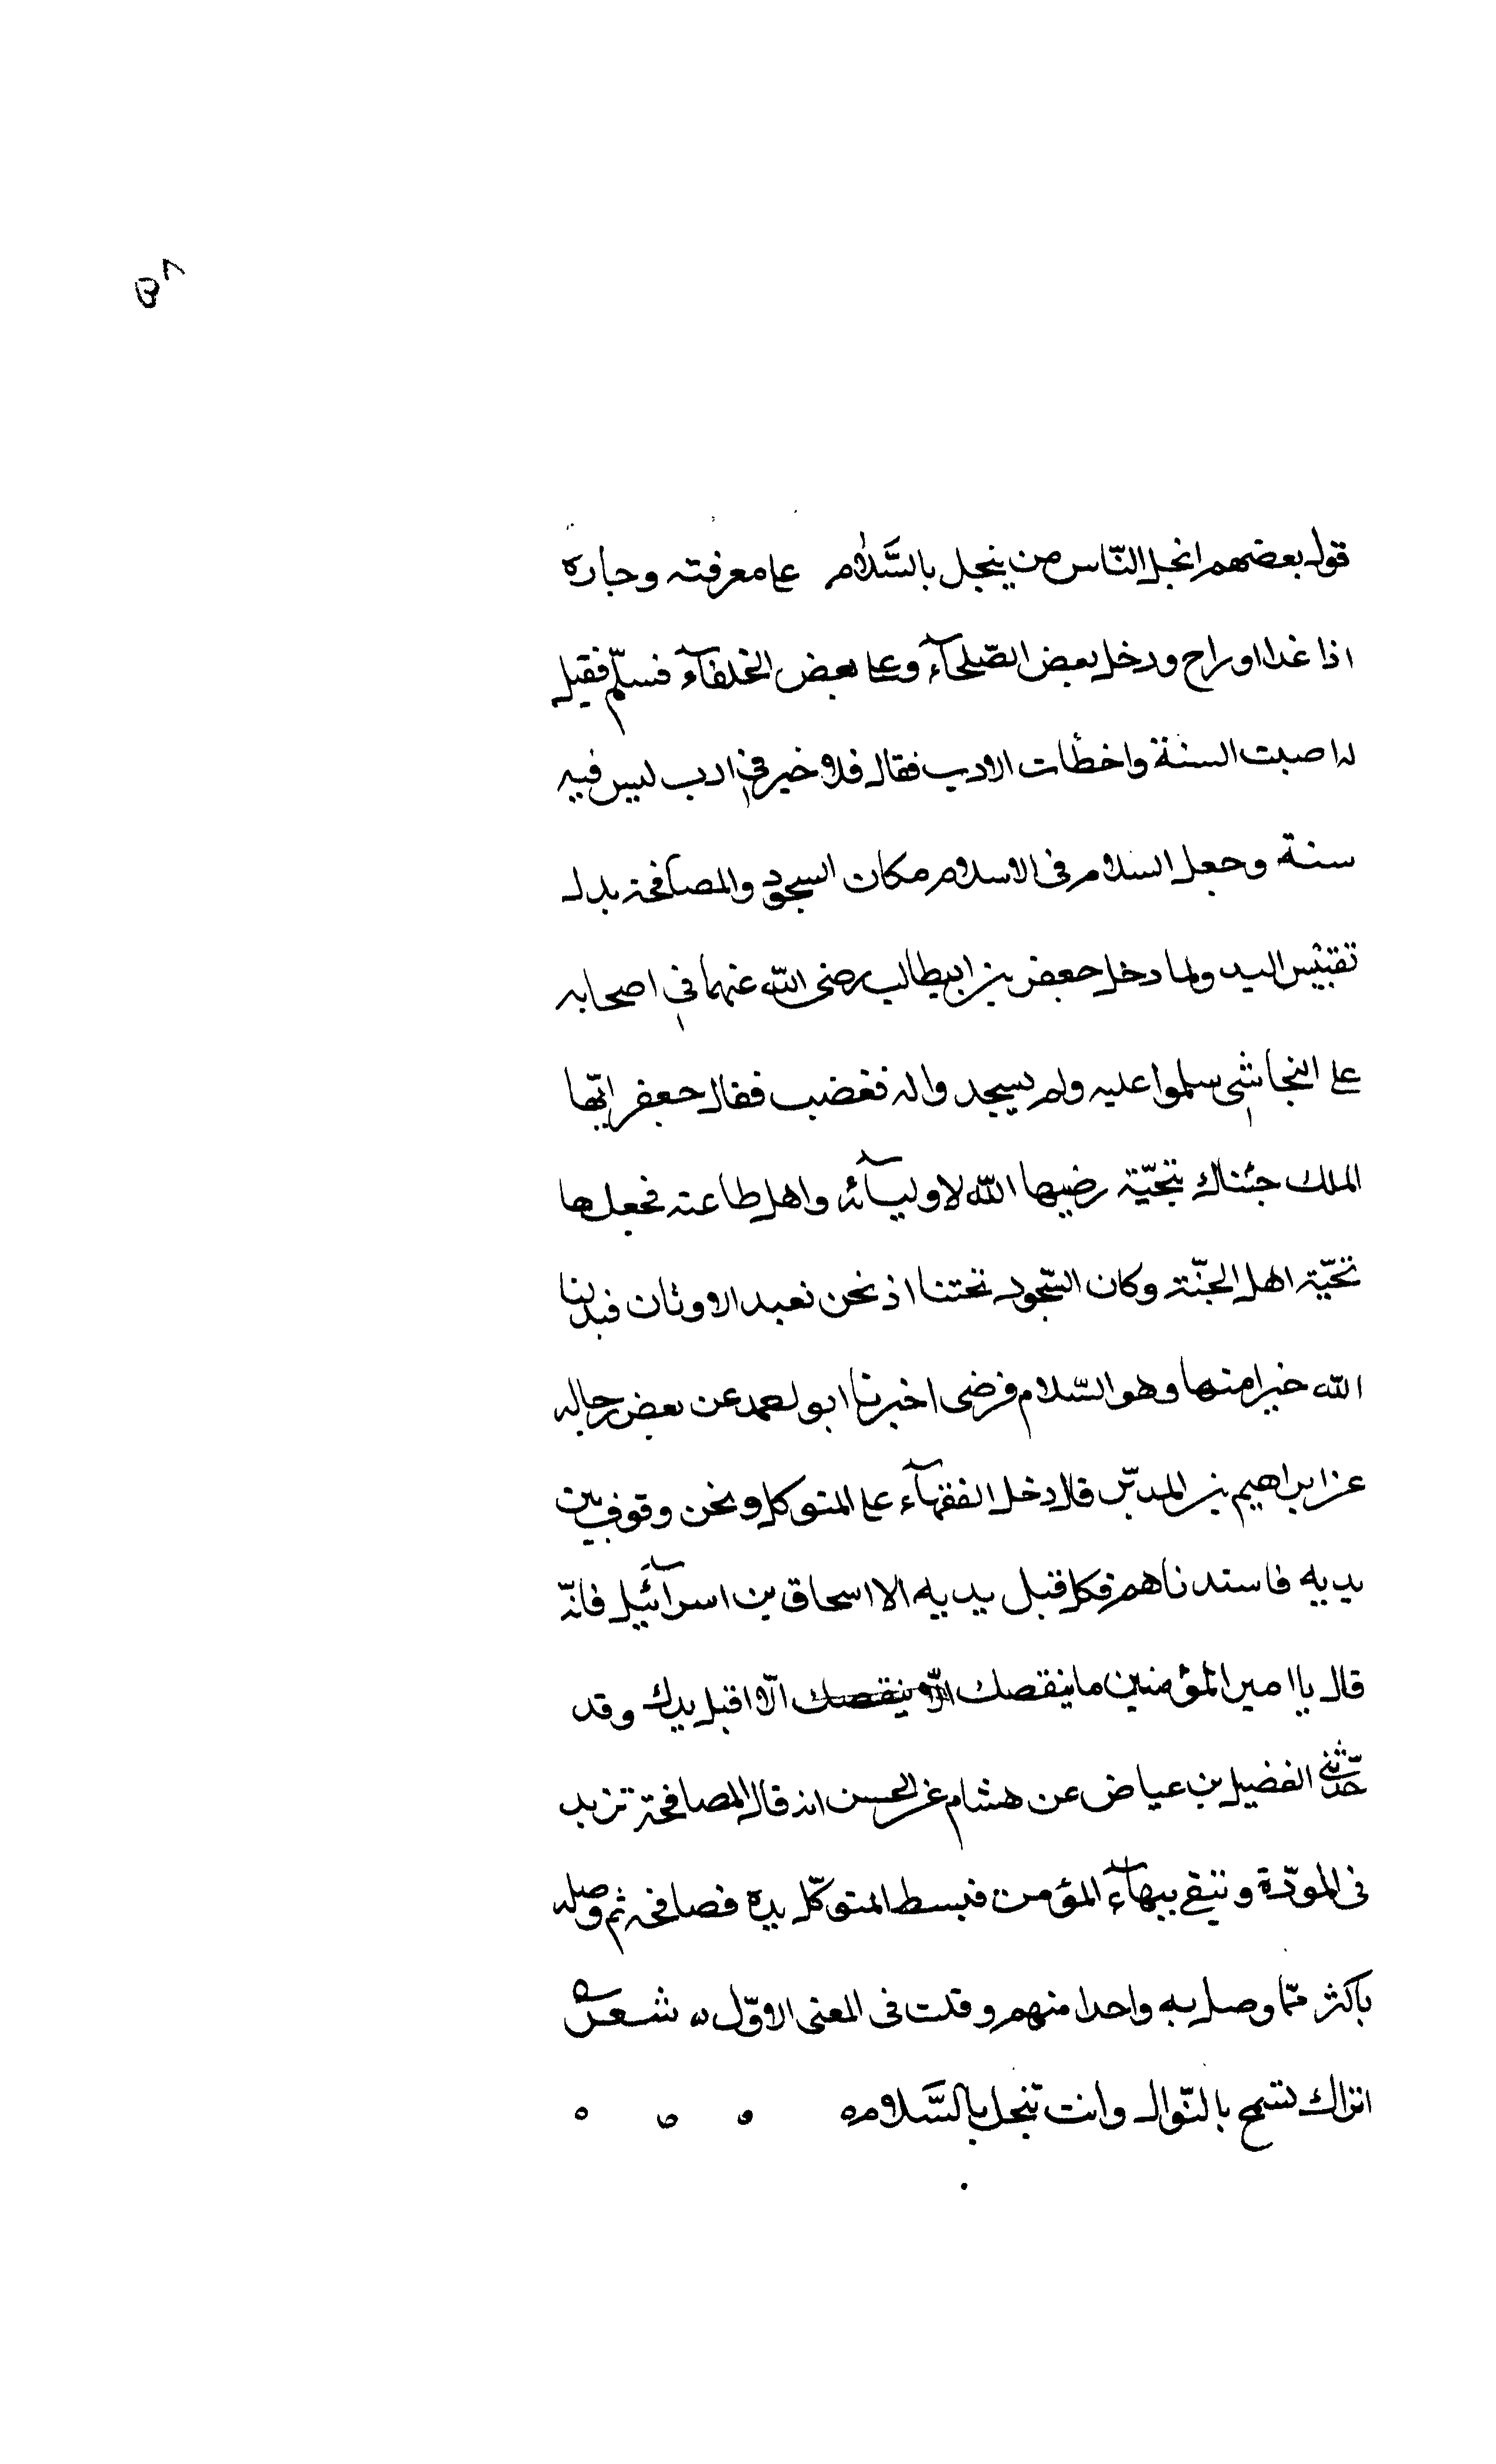 ٥٨
قول بعضهم ابخل الناس من يبخل بالسَّلام على معرفته وجاره
اذا غدا او راح ودخل بعض الصّلحآء وعلى بعض الخلفآء فسلّم فقيل
له اصبت السنة واخطأت الادب فقال فلا خير في ادب ليس فيه
سنة وجعل السلام فى الاسلام مكان السجود والمصافحة بدل
تقبيس اليد ولما دخل جعفر بن ابيطالب رضى اللّه عنهما في اصحابه
على النجاشى سلموا عليه ولم يسجدوا له فغضب فقال جعفر ايّها
الملك جئناك بتحيّة رضيها اللّه لاوليآئه واهل طاعته فجعلها
تحيّة اهل الجنّة وكان السّجود تحتنا اذ نحن نعبد الاوثان فبدلنا
اللّه خيرا منها وهو السّلام فرضى اخبرنا ابو عن بعض رجاله
عن ابراهيم بن المدبّر قال دخل الفقهآء على المتوكل ونحن وقوف بين
يديه فاستدناهم فكل قبل يديه الا اسحاق بن اسرآئيل فانّه
قال يا امير المؤمنين ما ينقصك الّا ينقصك الّا اقبل يدك وقد
حدّثنى الفضيل بن عياض عن هشام عن الحسن انه قال المصافحة تزيد
فى المودّة وتنقى ببهآء المؤمن فبسط المتوكّل يده فصافحه ثم وصله
باكثر ممّا وصل به واحدا منهم وقلت فى المعنى الاوّل ه شعر
اتراك تسمح بالنّوال وانت تبخل بالسَّلام ه ه ه ه